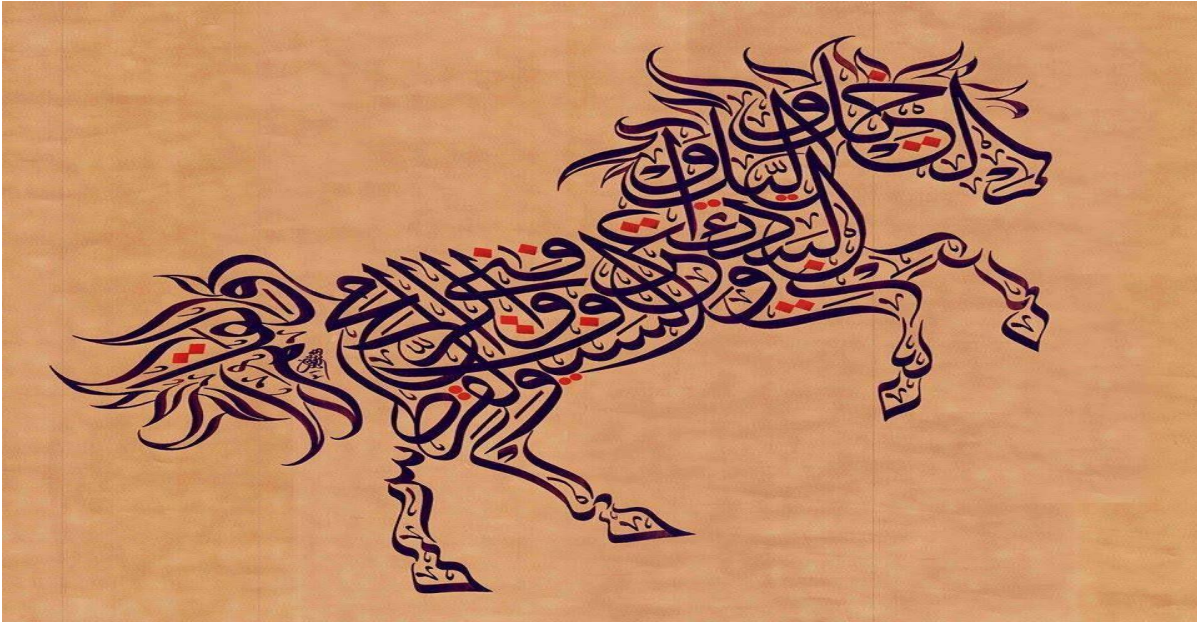 الخيل والليل والبيداء تعرفني والسيف والرمح والقرطاس والقلم